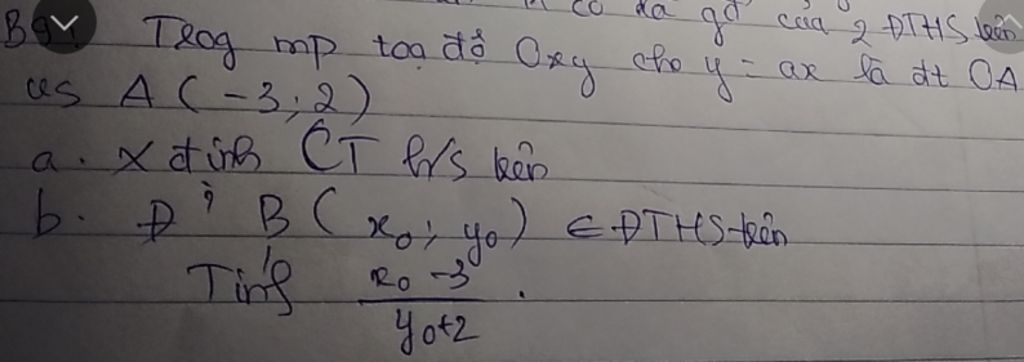 có là gđ của 2 ĐTHS trên
B9: Trog mp toạ độ Oxy cho y = ax là đt OA
vs A(-3; 2)
a. x định CT h/s trên
b. Đ' B(x₀; y₀) ∈ ĐTHS trên
Tính \frac{x₀ -3}{y₀+2}.